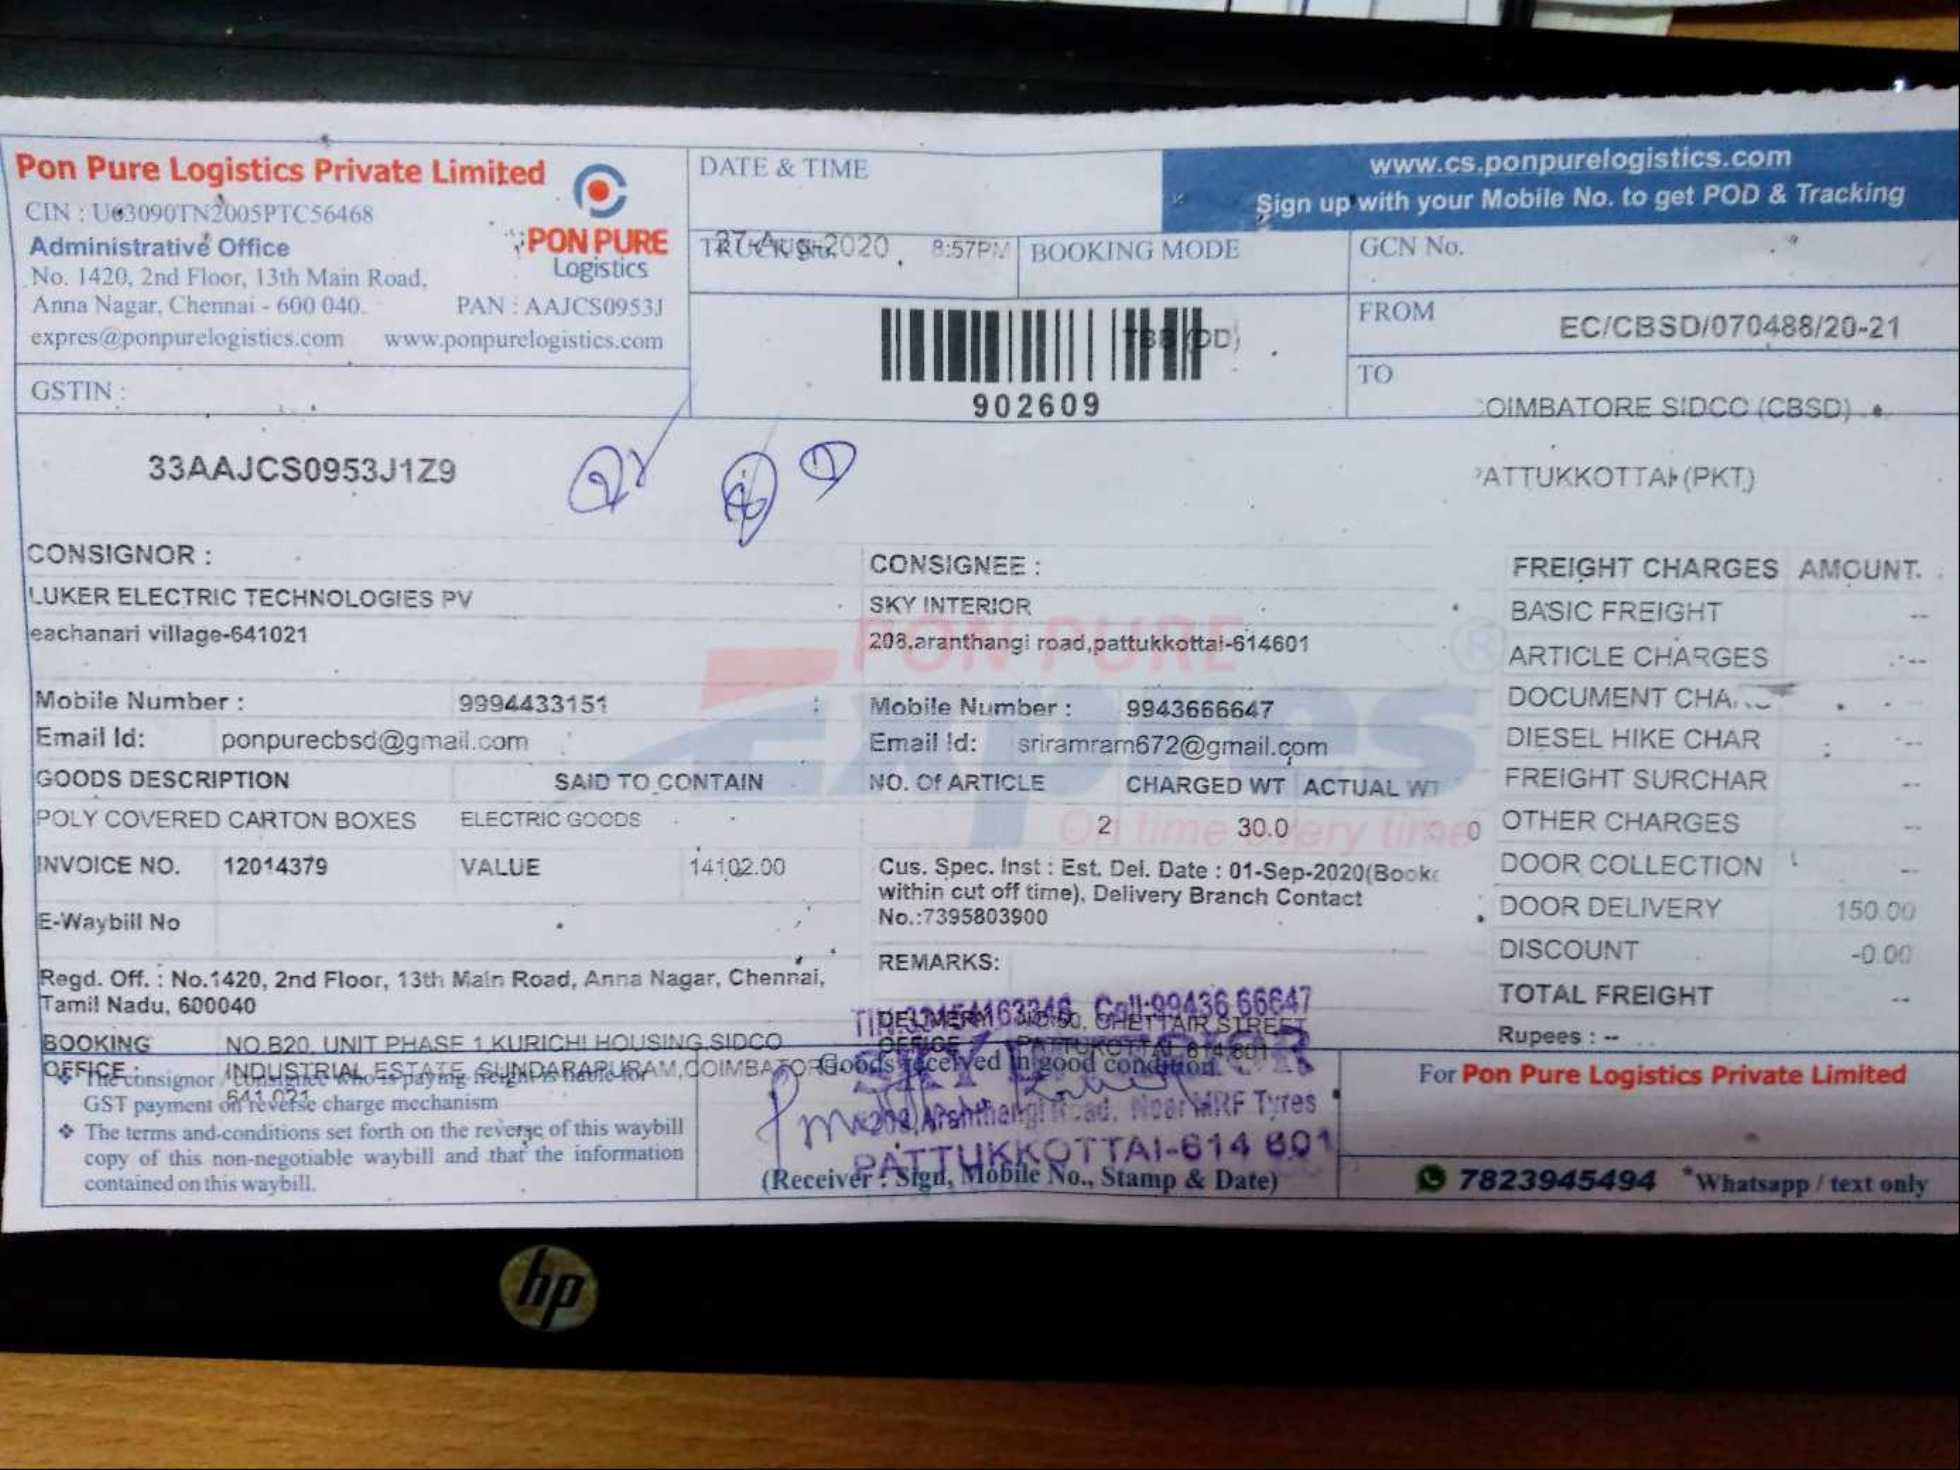 Pon Pure Logistics Private Limited
CIN : U63090TN2005PTC56468
Administrative Office
No. 1420, 2nd Floor, 13th Main Road,
Anna Nagar, Chennai - 600 040.
PAN : AAJCS0953J
expres@ponpurelogistics.com www.ponpurelogistics.com
PON PURE
Logistics
GSTIN :
33AAJCS0953J1Z9
DATE & TIME
27-Aug-2020 8:57PM
BOOKING MODE
902609
www.cs.ponpurelogistics.com
Sign up with your Mobile No. to get POD & Tracking
GCN No.
FROM
EC/CBSD/070488/20-21
TO
OIMBATORE SIDCO (CBSD)
PATTUKKOTTAI (PKT)
CONSIGNOR :
LUKER ELECTRIC TECHNOLOGIES PV
eachanari village-641021
Mobile Number : 9994433151
Email Id: ponpurecbsd@gmail.com
CONSIGNEE :
SKY INTERIOR
208,aranthangi road,pattukkottai-614601
Mobile Number : 9943666647
Email Id: sriramram672@gmail.com
PON PURE
Expres
On time every time
GOODS DESCRIPTION SAID TO CONTAIN NO. Of ARTICLE CHARGED WT ACTUAL WT
POLY COVERED CARTON BOXES ELECTRIC GOODS 2 30.0 0
INVOICE NO. 12014379 VALUE 14102.00
E-Waybill No
Cus. Spec. Inst : Est. Del. Date : 01-Sep-2020(Booke
within cut off time), Delivery Branch Contact
No.:7395803900
REMARKS:
Regd. Off. : No.1420, 2nd Floor, 13th Main Road, Anna Nagar, Chennai,
Tamil Nadu, 600040
BOOKING OFFICE : NO.B20, UNIT PHASE 1 KURICHI HOUSING,SIDCO
INDUSTRIAL ESTATE, SUNDARAPURAM,COIMBATORE
641 021
FREIGHT CHARGES AMOUNT.
BASIC FREIGHT --
ARTICLE CHARGES --
DOCUMENT CHA
DIESEL HIKE CHAR --
FREIGHT SURCHAR --
OTHER CHARGES --
DOOR COLLECTION --
DOOR DELIVERY 150.00
DISCOUNT -0.00
TOTAL FREIGHT --
Rupees : --
The consignor / consignee who is paying freight is liable for
GST payment on reverse charge mechanism
The terms and conditions set forth on the reverse of this waybill
copy of this non-negotiable waybill and that the information
contained on this waybill.
Call:99436 66647
Goods received in good condition
Road, Near MRF Tyres
PATTUKKOTTAI-614 601
(Receiver : Sign, Mobile No., Stamp & Date)
For Pon Pure Logistics Private Limited
7823945494 *Whatsapp / text only
hp